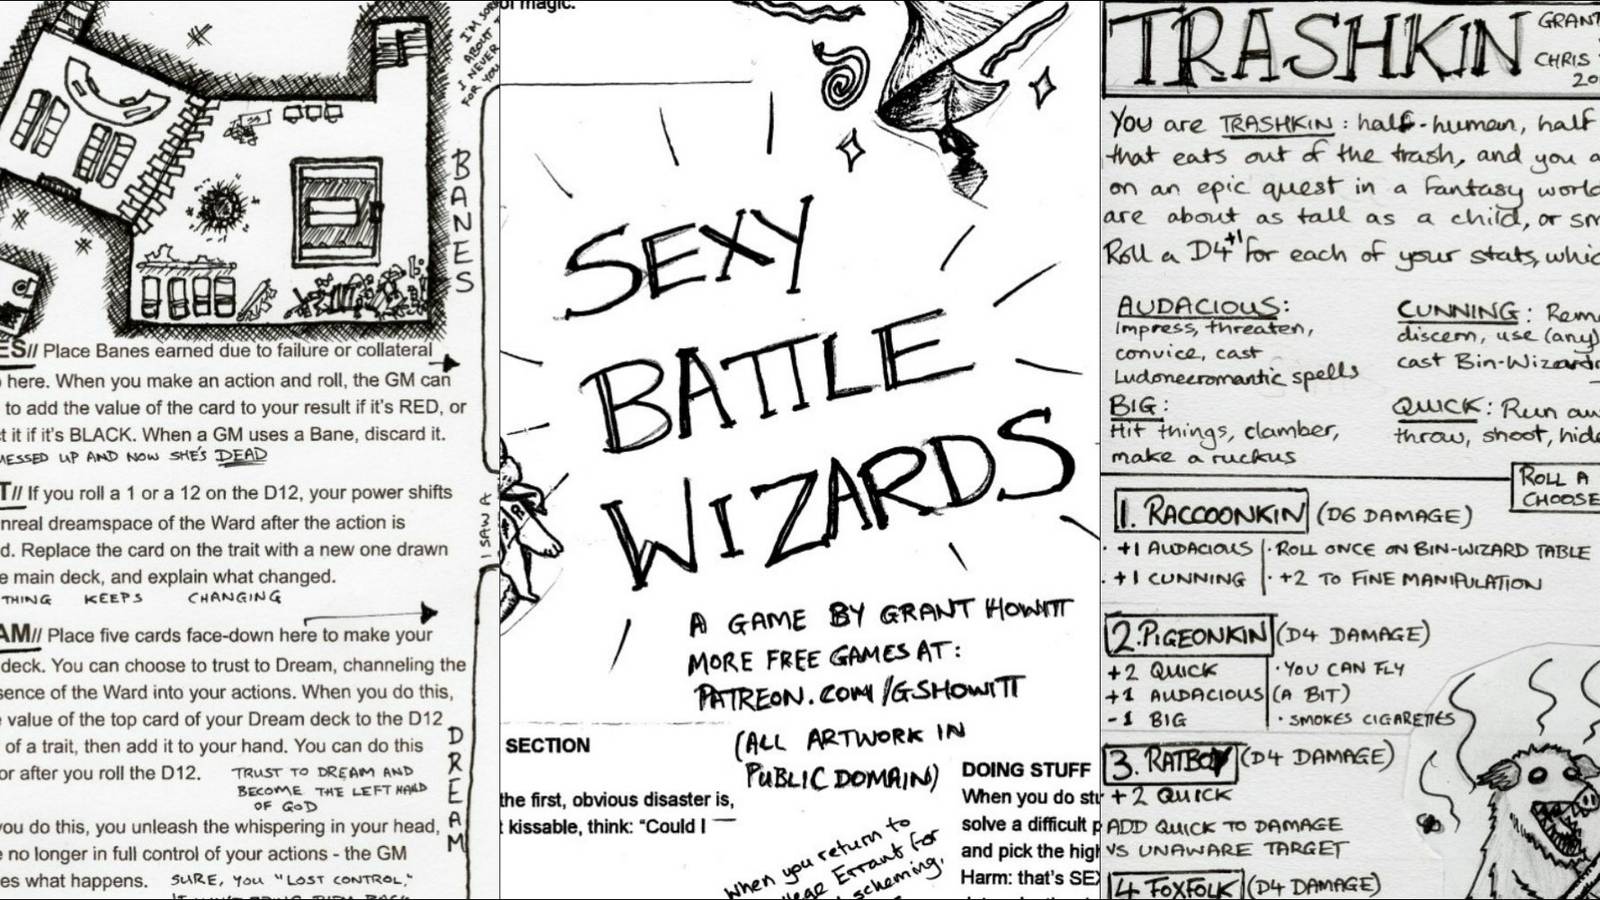 I'M SORRY
ABOUT
I NEVER
FOR YOU
BANES
ES// Place Banes earned due to failure or collateral
here. When you make an action and roll, the GM can
to add the value of the card to your result if it's RED, or
t it if it's BLACK. When a GM uses a Bane, discard it.
MESSED UP AND NOW SHE'S DEAD
T// If you roll a 1 or a 12 on the D12, your power shifts
nreal dreamspace of the Ward after the action is
d. Replace the card on the trait with a new one drawn
e main deck, and explain what changed.
THING KEEPS CHANGING
I SAW A
AM// Place five cards face-down here to make your
deck. You can choose to trust to Dream, channeling the
sence of the Ward into your actions. When you do this,
e value of the top card of your Dream deck to the D12
of a trait, then add it to your hand. You can do this
or after you roll the D12.
TRUST TO DREAM AND
BECOME THE LEFT HAND
OF GOD
DREAM
you do this, you unleash the whispering in your head,
e no longer in full control of your actions - the GM
es what happens.
SURE, YOU "LOST CONTROL."
of magic.
SEXY
BATTLE
WIZARDS
A GAME BY GRANT HOWITT
MORE FREE GAMES AT:
PATREON.COM/GSHOWITT
(ALL ARTWORK IN
PUBLIC DOMAIN)
SECTION
the first, obvious disaster is,
t kissable, think: "Could I
When you return to
lege Errant for
scheming,
DOING STUFF
When you do stu
solve a difficult p
and pick the high
Harm: that's SEX
TRASHKIN
GRANT
CHRIS
20
You are TRASHKIN: half-human, half
that eats out of the trash, and you a
on an epic quest in a fantasy world
are about as tall as a child, or sm
Roll a D4+1 for each of your stats, whic
AUDACIOUS:
Impress, threaten,
convice, cast
Ludonecromantic spells
CUNNING: Reme
discern, use (any)
cast Bin-Wizardr
BIG:
Hit things, clamber,
make a ruckus
QUICK: Run aw
throw, shoot, hide
ROLL A
CHOOSE
1. RACCOONKIN (D6 DAMAGE)
+1 AUDACIOUS
+1 CUNNING
· ROLL ONCE ON BIN-WIZARD TABLE
· +2 TO FINE MANIPULATION
2. PIGEONKIN (D4 DAMAGE)
+2 QUICK
+1 AUDACIOUS
-1 BIG
· YOU CAN FLY
(A BIT)
· SMOKES CIGARETTES
3. RATBOY (D4 DAMAGE)
+2 QUICK
ADD QUICK TO DAMAGE
VS UNAWARE TARGET
4 FOXFOLK (D4 DAMAGE)